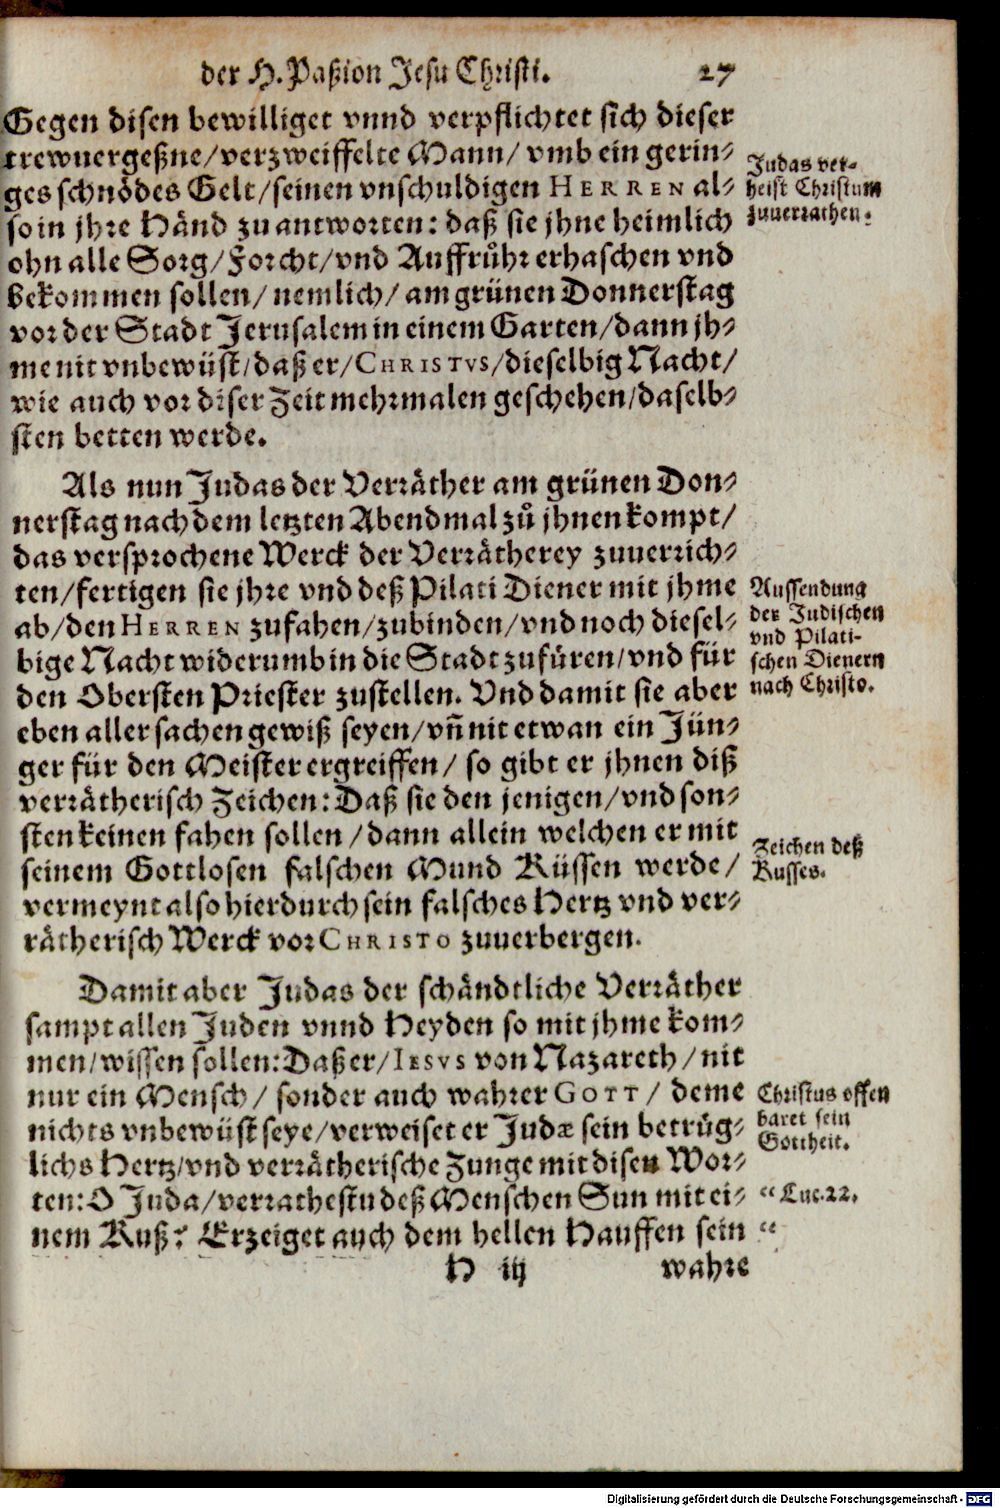 der H. Paßion Jesu Christi. 27
Gegen disen bewilliget vnnd verpflichtet sich dieser
trewuergeßne/verzweiffelte Mann/ vmb ein gerin-
ges schnödes Gelt/seinen vnschuldigen HERREN al-
so in jhre Händ zu antworten: daß sie jhne heimlich
ohn alle Sorg/Forcht/vnd Auffrůhr erhaschen vnd
bekommen sollen/ nemlich/ am grünen Donnerstag
vor der Stadt Jerusalem in einem Garten/dann jh-
me nit vnbewüst/daß er/CHRISTVS/dieselbig Nacht/
wie auch vor diser Zeit mehrmalen geschehen/daselb-
sten betten werde.
Judas ver-
heist Christum
zuuerrathen.
Als nun Judas der Verräther am grünen Don-
nerstag nach dem letzten Abendmal zů jhnen kompt/
das versprochene Werck der Verrätherey zuuerrich-
ten/fertigen sie jhre vnd deß Pilati Diener mit jhme
ab/den HERREN zufahen/zubinden/vnd noch diesel-
bige Nacht widerumb in die Stadt zufüren/vnd für
den Obersten Priester zustellen. Vnd damit sie aber
eben aller sachen gewiß seyen/vñ nit etwan ein Jün-
ger für den Meister ergreiffen/ so gibt er jhnen diß
verrätherisch Zeichen: Daß sie den jenigen/vnd son-
sten keinen fahen sollen/dann allein welchen er mit
seinem Gottlosen falschen Mund Küssen werde/
vermeynt also hierdurch sein falsches Hertz vnd ver-
rätherisch Werck vor CHRISTO zuuerbergen.
Aussendung
der Jüdischen
vnd Pilati-
schen Dienern
nach Christo.
Zeichen deß
Kusses.
Damit aber Judas der schändtliche Verräther
sampt allen Juden vnnd Heyden so mit jhme kom-
men/wissen sollen: Daß er/IESVS von Nazareth/nit
nur ein Mensch/ sonder auch wahrer GOTT/ deme
nichts vnbewüst seye/verweiset er Judæ sein betrüg-
lichs Hertz/vnd verrätherische Zunge mit disen Wor-
ten: O Juda/verrathestu deß Menschen Sun mit ei-
nem Kuß? Erzeiget auch dem hellen Hauffen sein
Christus offen
baret sein
Gottheit.
“ Luc. 22.
“
H iij wahre
Digitalisierung gefördert durch die Deutsche Forschungsgemeinschaft - DFG